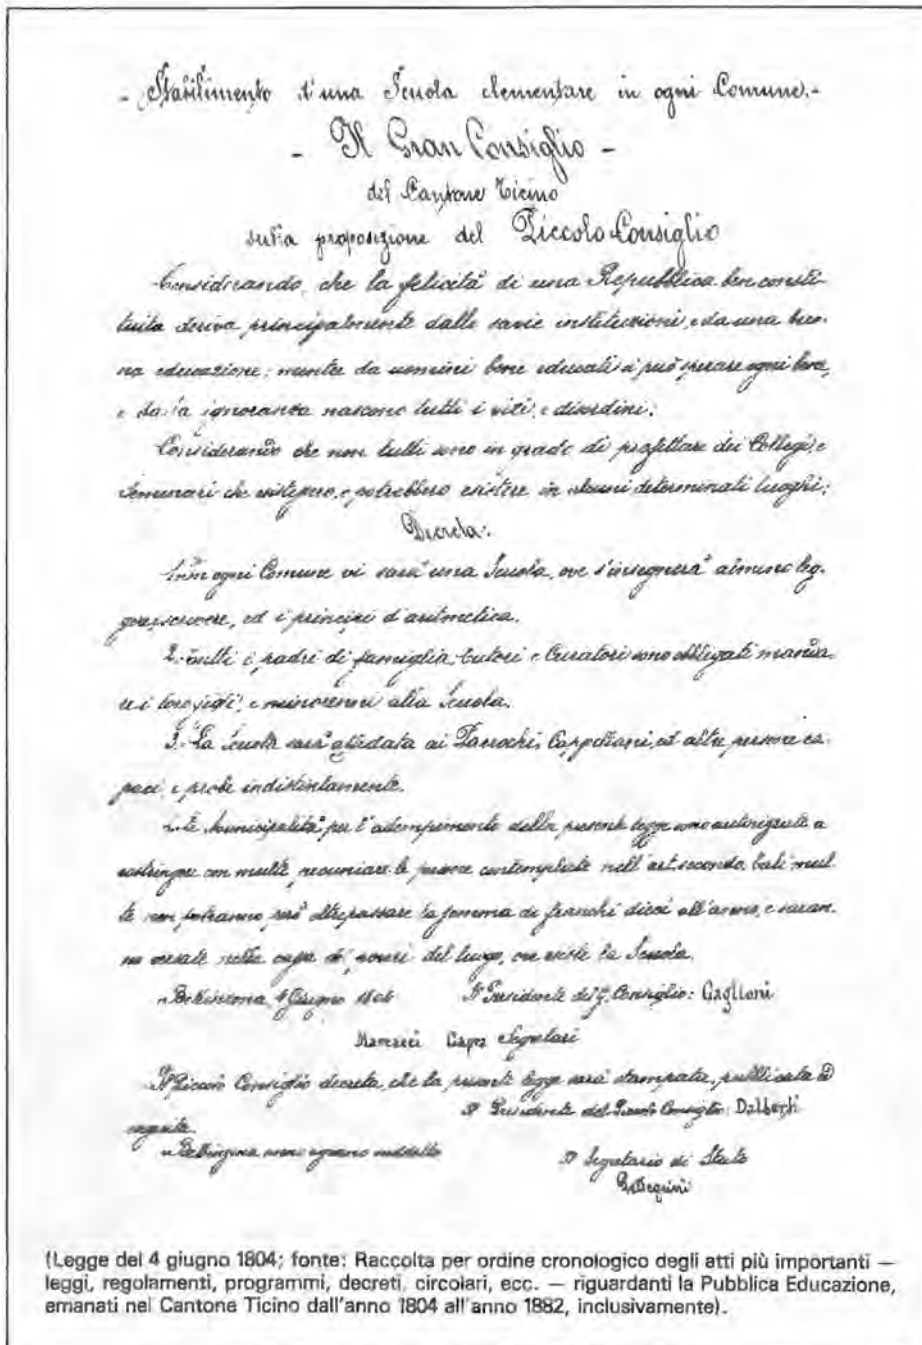 - Stabilimento d'una Scuola elementare in ogni Comune.-
- Il Gran Consiglio -
del Cantone Ticino
sulla proposizione del Piccolo Consiglio
Considerando, che la felicità di una Repubblica ben consti-
tuita deriva principalmente dalle savie instituzioni, e da una buo-
na educazione; mentre da uomini bene educati si può sperare ogni bene,
e dalla ignoranza nascono tutti i vizi, e disordini;
Considerando che non tutti sono in grado di profittare dei Collegi, e
Seminari che esistessero, e potrebbero esistere in alcuni determinati luoghi;
Decreta:
In ogni Comune vi sarà una Scuola, ove s'insegnerà almeno leg-
gere, scrivere, ed i principi d'aritmetica.
2. Tutti i padri di famiglia, tutori e Curatori sono obbligati manda-
re i loro figli, e minorenni alla Scuola.
3. La Scuola sarà affidata ai Parrochi, Cappellani, ed altre persone ca-
paci, e probe indistintamente.
4. Le Municipalità per l'adempimento della presente legge sono autorizzate a
costringere con multe pecuniarie le persone contemplate nell'art. secondo. Tali mul-
te non potranno però oltrepassare la somma di franchi dieci all'anno, e saran-
no versate nella cassa dei poveri del luogo, ove esiste la Scuola.
Bellinzona, 4 Giugno 1804 Il Presidente del G. Consiglio:
Segretari
Il Piccolo Consiglio decreta, che la presente legge sarà stampata, pubblicata ed
Il Presidente del Piccolo Consiglio: Dalberti
eseguita.
Bellinzona anno e giorno suddetto
Il Segretario di Stato
Pellegrini
(Legge del 4 giugno 1804; fonte: Raccolta per ordine cronologico degli atti più importanti —
leggi, regolamenti, programmi, decreti, circolari, ecc. — riguardanti la Pubblica Educazione,
emanati nel Cantone Ticino dall'anno 1804 all'anno 1882, inclusivamente).